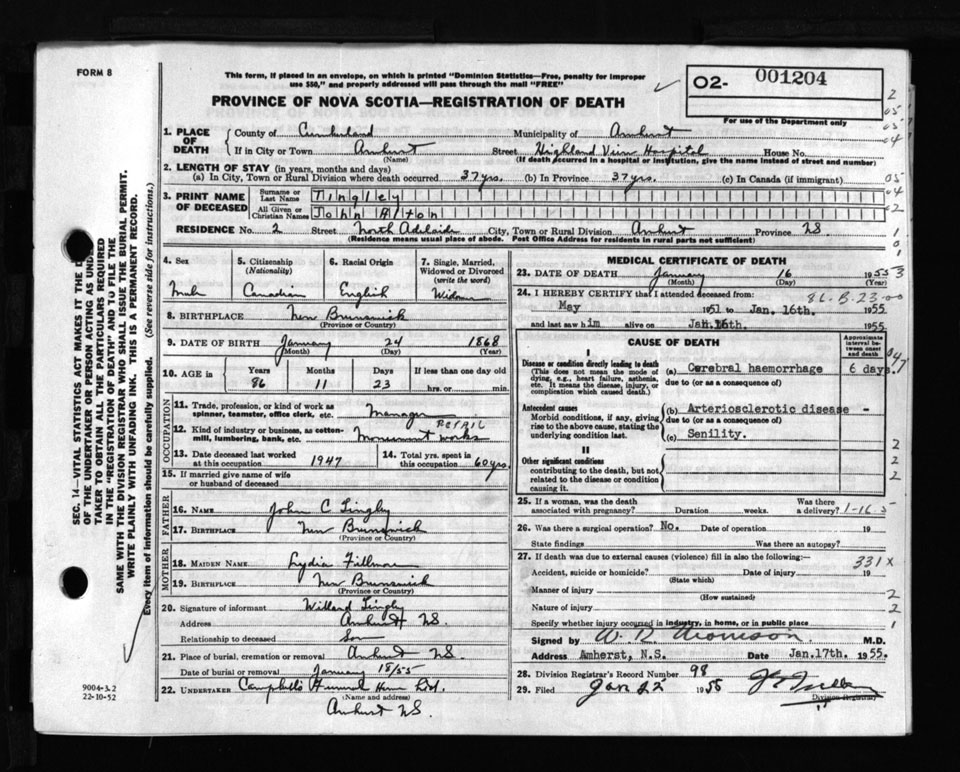 FORM 8
This form, if placed in an envelope, on which is printed "Dominion Statistics—Free, penalty for improper
use $50," and properly addressed will pass through the mail "FREE"
PROVINCE OF NOVA SCOTIA—REGISTRATION OF DEATH
02- 001204
For use of the Department only
1. PLACE OF DEATH
County of Cumberland Municipality of Amherst
If in City or Town Amherst Street Highland View Hospital House No.
(Name) (If death occurred in a hospital or institution, give the name instead of street and number)
2. LENGTH OF STAY (in years, months and days)
(a) In City, Town or Rural Division where death occurred 37 yrs. (b) In Province 37 yrs. (c) In Canada (if immigrant)
3. PRINT NAME OF DECEASED
Surname or Last Name Tingley
All Given or Christian Names John Alton
RESIDENCE No. 2 Street North Adelaide City, Town or Rural Division Amherst Province NS.
(Residence means usual place of abode. Post Office Address for residents in rural parts not sufficient)
4. Sex
Male
5. Citizenship
(Nationality)
Canadian
6. Racial Origin
English
7. Single, Married,
Widowed or Divorced
(write the word)
Widower
8. BIRTHPLACE New Brunswick
(Province or Country)
9. DATE OF BIRTH January 24 1868
(Month) (Day) (Year)
10. AGE in Years Months Days If less than one day old
86 11 23 hrs. or min.
OCCUPATION
11. Trade, profession, or kind of work as
spinner, teamster, office clerk, etc. Manager
12. Kind of industry or business, as cotton-
mill, lumbering, bank, etc. Retail Monument works
13. Date deceased last worked
at this occupation 1947
14. Total yrs. spent in
this occupation 60 yrs.
15. If married give name of wife
or husband of deceased
FATHER
16. NAME John C Tingley
17. BIRTHPLACE New Brunswick
(Province or Country)
MOTHER
18. MAIDEN NAME Lydia Fillmore
19. BIRTHPLACE New Brunswick
(Province or Country)
20. Signature of informant Willard Tingley
Address Amherst NS.
Relationship to deceased Son
21. Place of burial, cremation or removal Amherst NS.
Date of burial or removal January 18/55
22. UNDERTAKER Campbell's Funeral Home Ltd.
(Name and address)
Amherst NS.
MEDICAL CERTIFICATE OF DEATH
23. DATE OF DEATH January 16 1955
(Month) (Day) (Year)
24. I HEREBY CERTIFY that I attended deceased from:
86-B-23-00
May 1951 to Jan. 16th. 1955
and last saw him alive on Jan. 16th. 1955
CAUSE OF DEATH
Approximate
interval be-
tween onset
and death
I
Disease or condition directly leading to death
(This does not mean the mode of
dying, e.g., heart failure, asthenia,
etc. It means the disease, injury, or
complication which caused death.)
(a) Cerebral haemorrhage 6 days.
due to (or as a consequence of)
Antecedent causes
Morbid conditions, if any, giving
rise to the above cause, stating the
underlying condition last.
(b) Arteriosclerotic disease -
due to (or as a consequence of)
(c) Senility.
II
Other significant conditions
contributing to the death, but not
related to the disease or condition
causing it.
25. If a woman, was the death
associated with pregnancy? Duration weeks. Was there a delivery?
1-16-5
26. Was there a surgical operation? No. Date of operation 19
State findings Was there an autopsy?
27. If death was due to external causes (violence) fill in also the following:—
331X
Accident, suicide or homicide? Date of injury 19
(State which)
Manner of injury
(How sustained)
Nature of injury
Specify whether injury occurred in industry, in home, or in public place
Signed by W. R. Thomson M.D.
Address Amherst, N.S. Date Jan. 17th. 1955.
28. Division Registrar's Record Number 98
29. Filed Jan 22 1955
Division Registrar
SEC. 14—VITAL STATISTICS ACT MAKES IT THE D
OF THE UNDERTAKER OR PERSON ACTING AS UND
TAKER TO OBTAIN ALL THE PARTICULARS REQUIRED
IN THE "REGISTRATION OF DEATH" AND TO FILE THE
SAME WITH THE DIVISION REGISTRAR WHO SHALL ISSUE THE BURIAL PERMIT.
WRITE PLAINLY WITH UNFADING INK. THIS IS A PERMANENT RECORD.
Every item of information should be carefully supplied. (See reverse side for instructions.)
9004-3.2
22-10-52